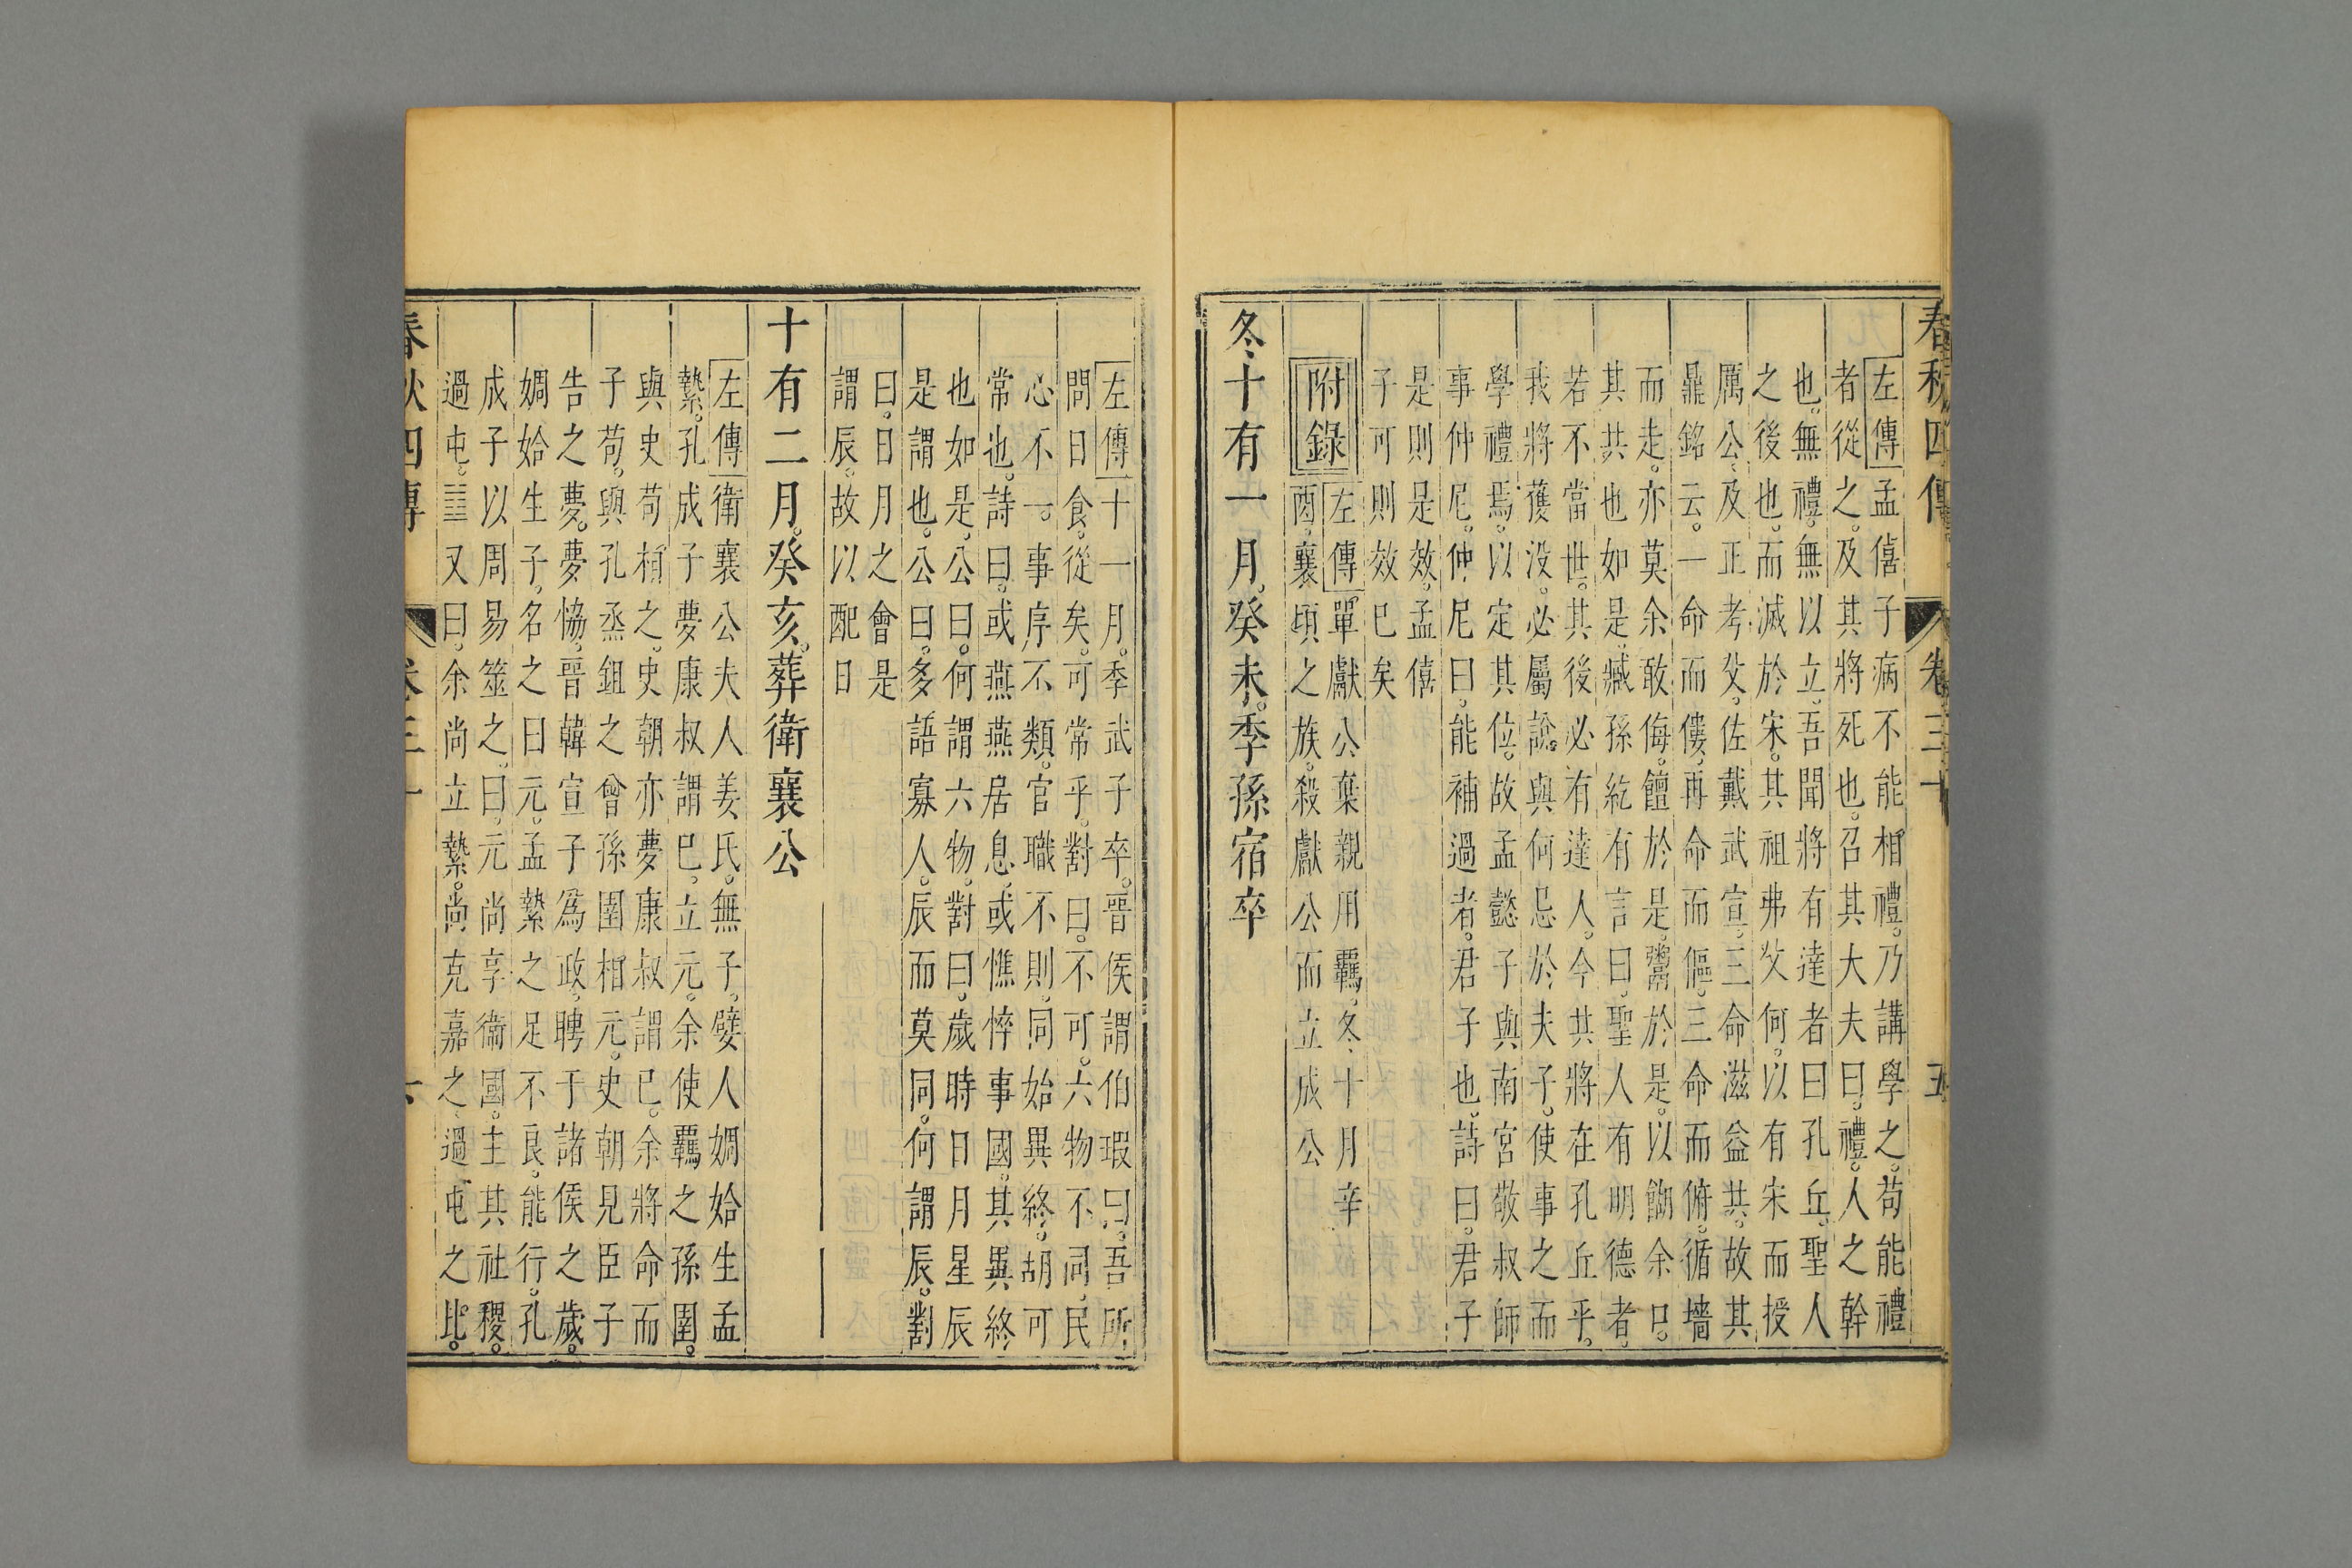 春秋四傳 卷三十 五
左傳孟僖子病不能相禮。乃講學之。苟能禮
者從之。及其將死也。召其大夫曰。禮。人之幹
也。無禮。無以立。吾聞將有達者曰孔丘。聖人
之後也。而滅於宋。其祖弗父何。以有宋而授
厲公。及正考父。佐戴武宣。三命滋益共。故其
鼎銘云。一命而僂。再命而傴。三命而俯。循墻
而走。亦莫余敢侮。饘於是。鬻於是。以餬余口。
其共也如是。臧孫紇有言曰。聖人有明德者。
若不當世。其後必有達人。今其將在孔丘乎。
我將獲没。必屬說與何忌於夫子。使事之而
學禮焉。以定其位。故孟懿子與南宮敬叔師
事仲尼。仲尼曰。能補過者。君子也。詩曰。君子
是則是效。孟僖
子可則效巳矣
附錄
左傳單獻公棄親用羈。冬十月辛
酉。襄頃之族。殺獻公而立成公
冬十有一月。癸未。季孫宿卒
左傳十一月。季武子卒。晉侯謂伯瑕曰。吾所
問日食。從矣。可常乎。對曰。不可。六物不同。民
心不一。事序不類。官職不則。同始異終。胡可
常也。詩曰。或燕燕居息。或憔悴事國。其異終
也如是。公曰。何謂六物。對曰。歲時日月星辰
是謂也。公曰。多語寡人。辰而莫同。何謂辰。對
曰。日月之會是
謂辰。故以配日
十有二月。癸亥。葬衛襄公
左傳衛襄公夫人姜氏。無子。嬖人婤姶生孟
縶。孔成子夢康叔謂巳。立元。余使羈之孫圉。
與史苟相之。史朝亦夢康叔謂巳。余將命而
子苟。與孔烝鉏之曾孫圉相元。史朝見成子
告之夢。夢恊。晉韓宣子爲政。聘于諸侯之歲。
婤姶生子。名之曰元。孟縶之足不良。能行。孔
成子以周易筮之。曰。元尚享衛國。主其社稷。
過屯。又曰。余尚立縶。尚克嘉之。過屯之比。
春秋四傳 卷三十 六